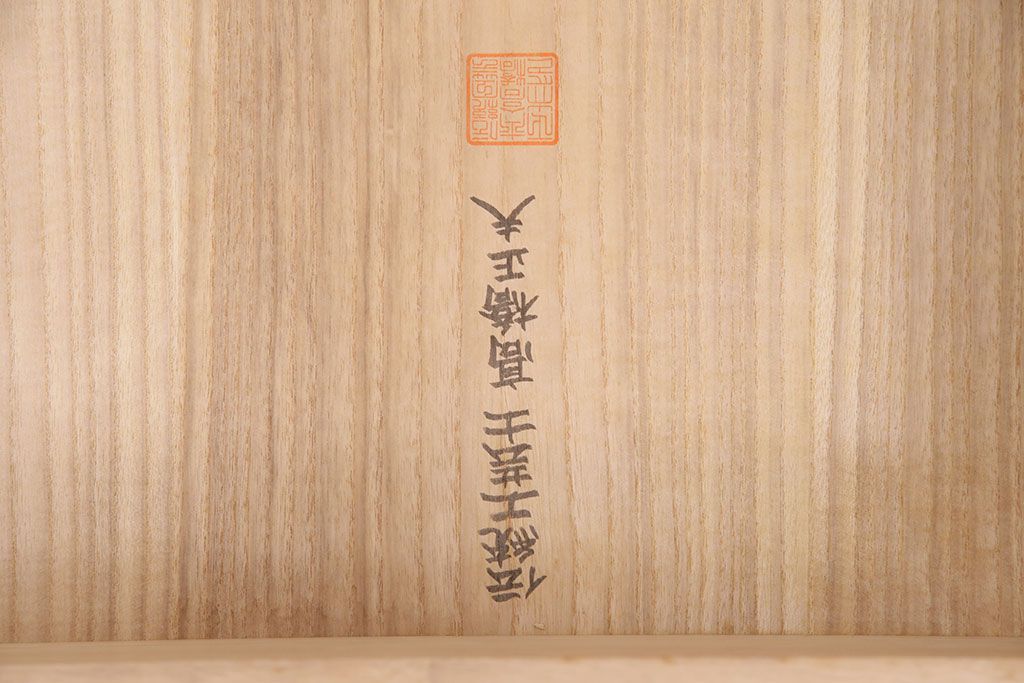 伝統工芸士 髙橋正夫